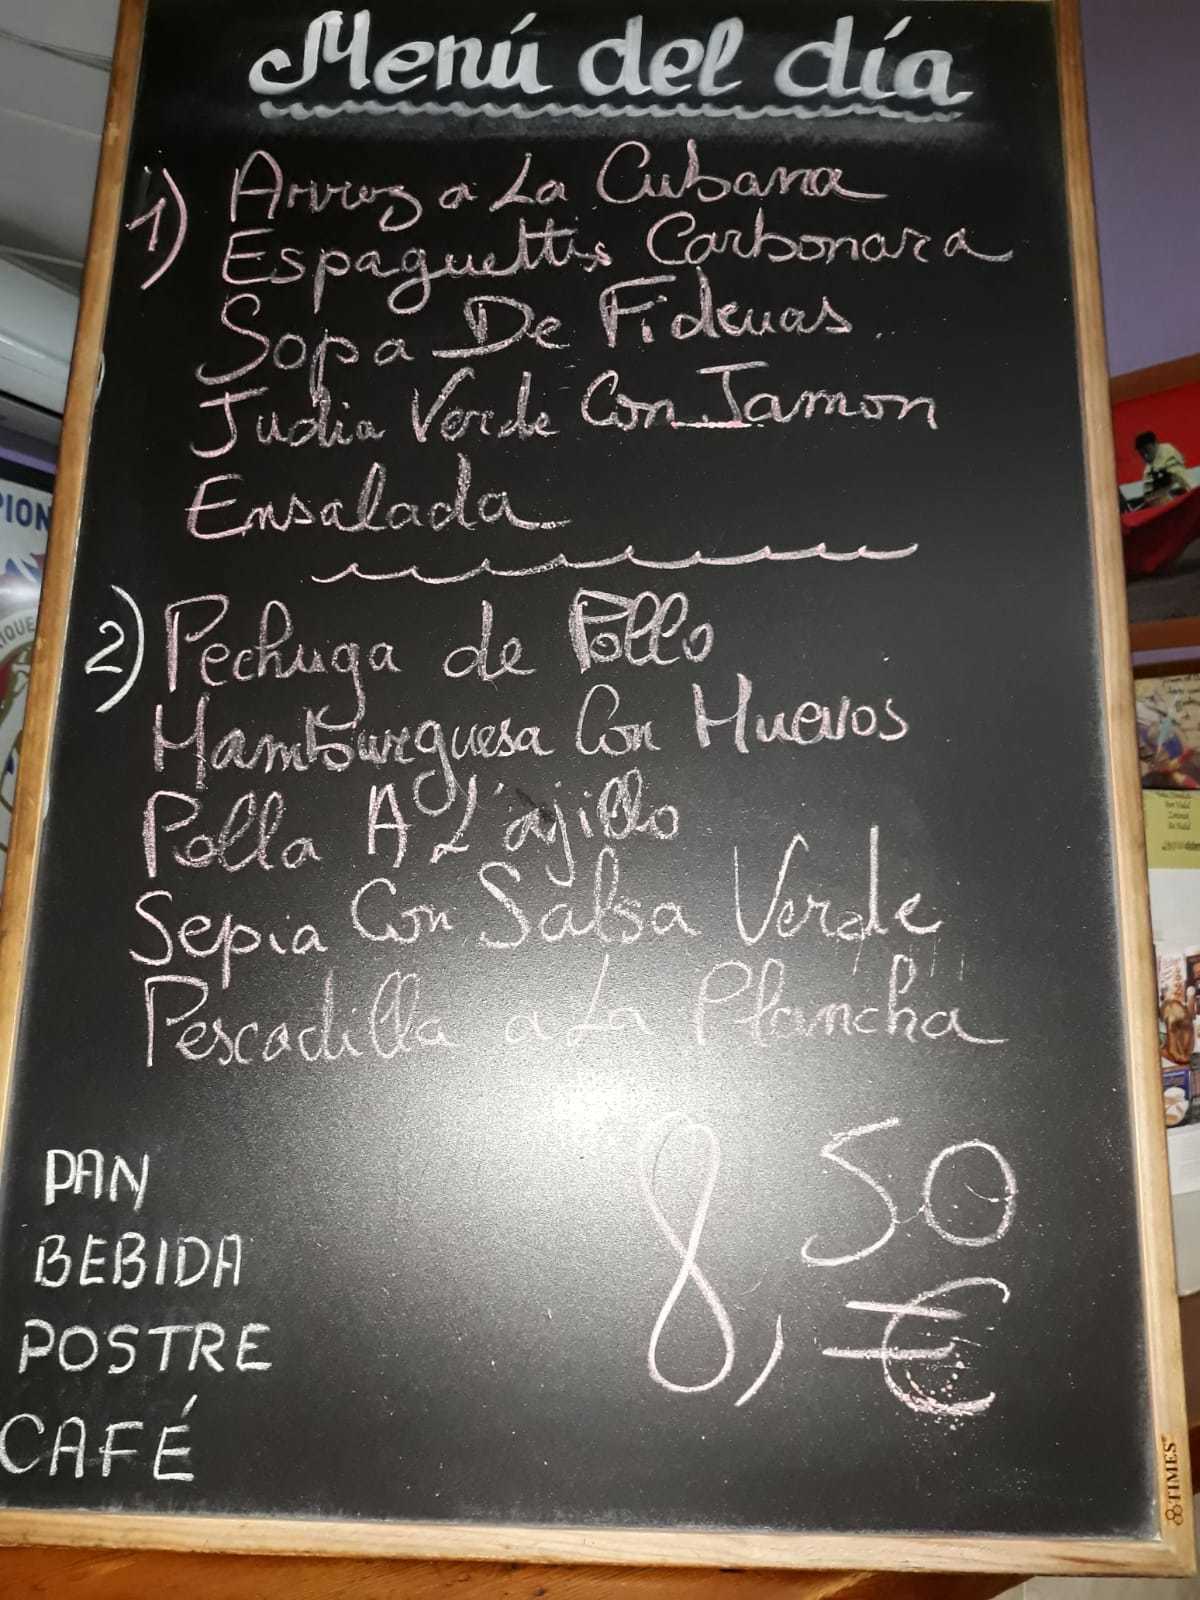 Menú del día
1) Arroz a La Cubana
Espaguettis Carbonara
Sopa De Fideuas
Judia Verde Con Jamon
Ensalada
2) Pechuga de Pollo
Hamburguesa Con Huevos
Polla A L'ajillo
Sepia Con Salsa Verde
Pescadilla a La Plancha
8,50 €
PAN
BEBIDA
POSTRE
CAFÉ
TIMES
PION
IQUE